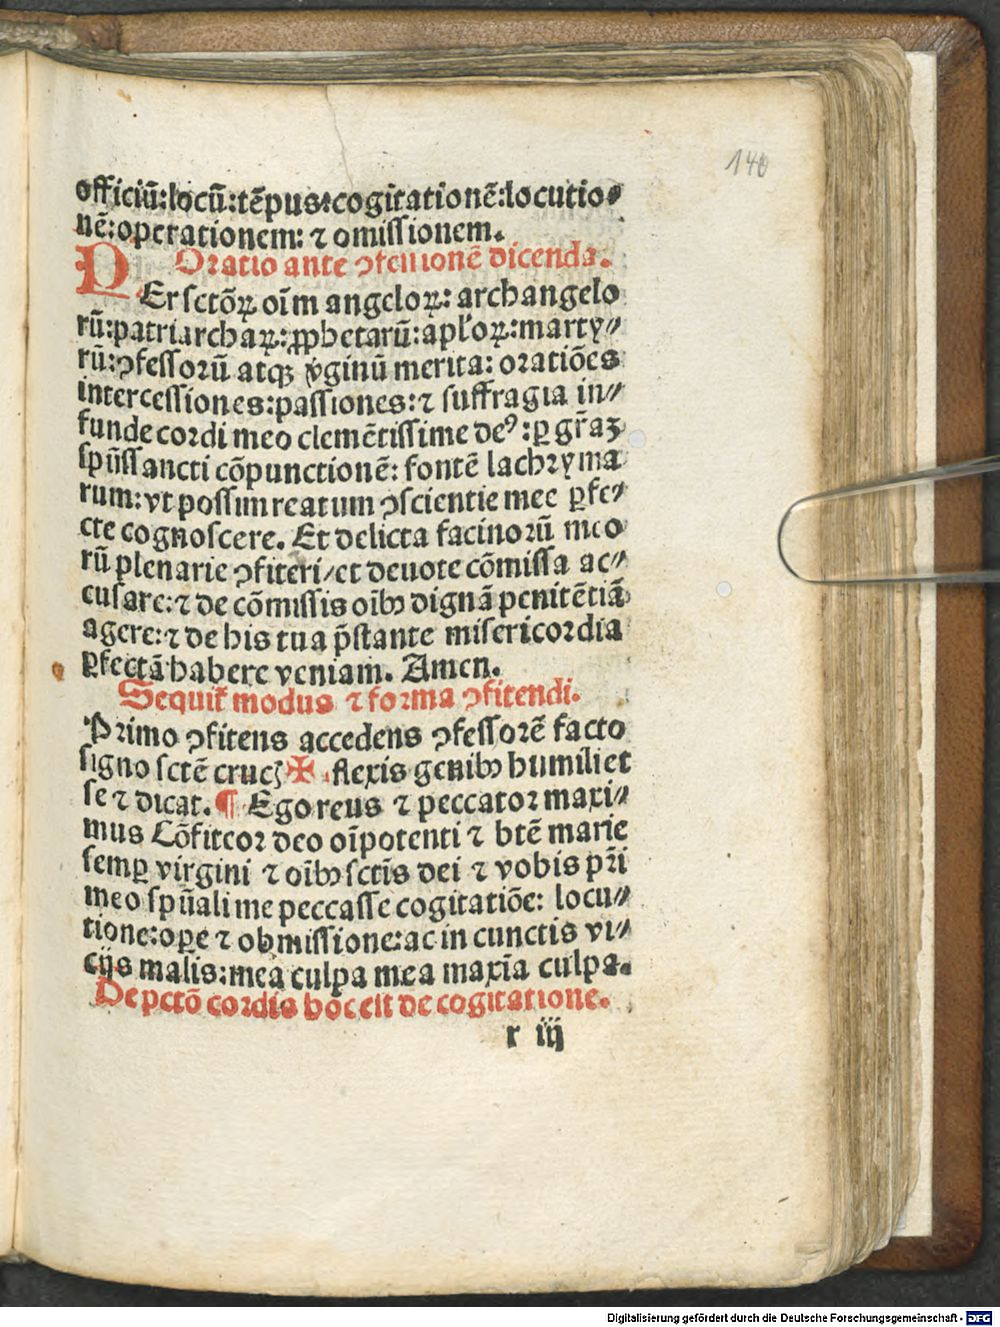 140
officiũ:locũ:tẽpus:cogitationẽ:locutio⸗
nẽ:operationem: ⁊ omissionem.
Oratio ante ꝯfessionẽ dicenda.
PEr sctõꝝ oĩm angeloꝝ: archangelo
rũ:patriarchaꝝ:ꝓphetarũ:apl'oꝝ:marty⸗
rũ:ꝯfessorũ atqꝫ v̾ginũ merita: oratiões
intercessiones:passiones:⁊ suffragia in⸗
funde cordi meo clemẽtissime deꝰ:ꝑ gr̃aꝫ
spũssancti cõpunctionẽ: fontẽ lachryma
rum:vt possim reatum ꝯscientie mee ꝑfe⸗
cte cognoscere. Et delicta facinorũ meo
rũ plenarie ꝯfiteri/et deuote cõmissa ac⸗
cusare:⁊ de cõmissis oĩbꝰ dignã penitẽtiã
agere:⁊ de his tua p̃stante misericordia
ꝑfectã habere veniam. Amen.
Sequit᷑ modus ⁊ forma ꝯfitendi.
Primo ꝯfitens accedens ꝯfessorẽ facto
signo sctẽ crucꝭ ✠ flexis genibꝰ humiliet
se ⁊ dicat. ¶ Ego reus ⁊ peccator maxi⸗
mus Cõfiteor deo oĩpotenti ⁊ btẽ marie
semꝑ virgini ⁊ oĩbꝰ sctĩs dei ⁊ vobis pr̃i
meo spũali me peccasse cogitatiõe: locu⸗
tione:oꝑe ⁊ obmissione:ac in cunctis vi⸗
cijs malis:mea culpa mea maxĩa culpa.
De pctõ cordis hoc est de cogitatione.
r iij
Digitalisierung gefördert durch die Deutsche Forschungsgemeinschaft - DFG